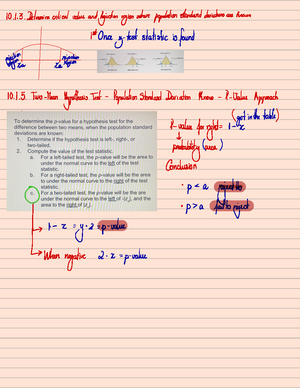 10.1.3. Determine critical value and rejection region where population standard deviations are known
1st Once z-test statistic is found
rejection region
rejection region
10.1.5 Two-Mean Hypothesis Test - Population Standard Deviation Known - P-Value Approach
To determine the p-value for a hypothesis test for the
difference between two means, when the population standard
deviations are known:
1. Determine if the hypothesis test is left-, right-, or
two-tailed.
2. Compute the value of the test statistic.
a. For a left-tailed test, the p-value will be the area to
under the normal curve to the left of the test
statistic.
b. For a right-tailed test, the p-value will be the area
to under the normal curve to the right of the test
statistic.
c. For a two-tailed test, the p-value will be the are
under the normal curve to the left of -|z₀|, and the
area to the right of |z₀|.
(get in the table)
P-value for right = 1-x
probability (area)
Conclusion
• p < a
• p > a fail to reject
→ 1-x = y·2 = p-value
→ When negative 2·x = p-value